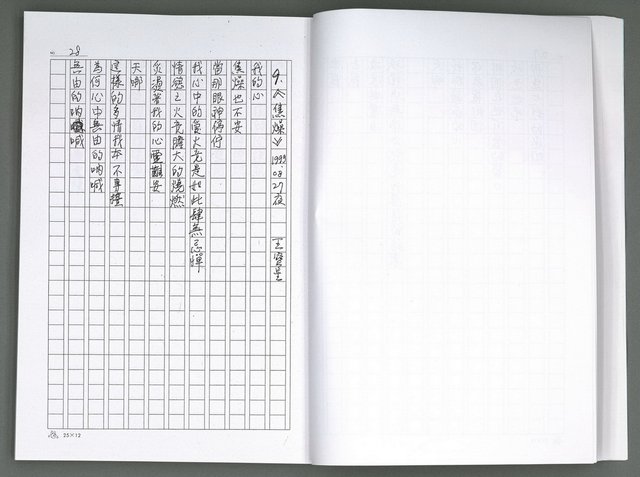 28
9.《焦燥》1999.08.27夜 王寶星
我的心
焦燥也不安
當那眼神停佇
我心中的愛火竟是如此肆無忌憚
情慾之火竟膽大的燒燃
炙燙著我的心靈難安
天哪
這樣的多情我本不專擅
為何心中無由的吶喊
無由的吶喊
25×12